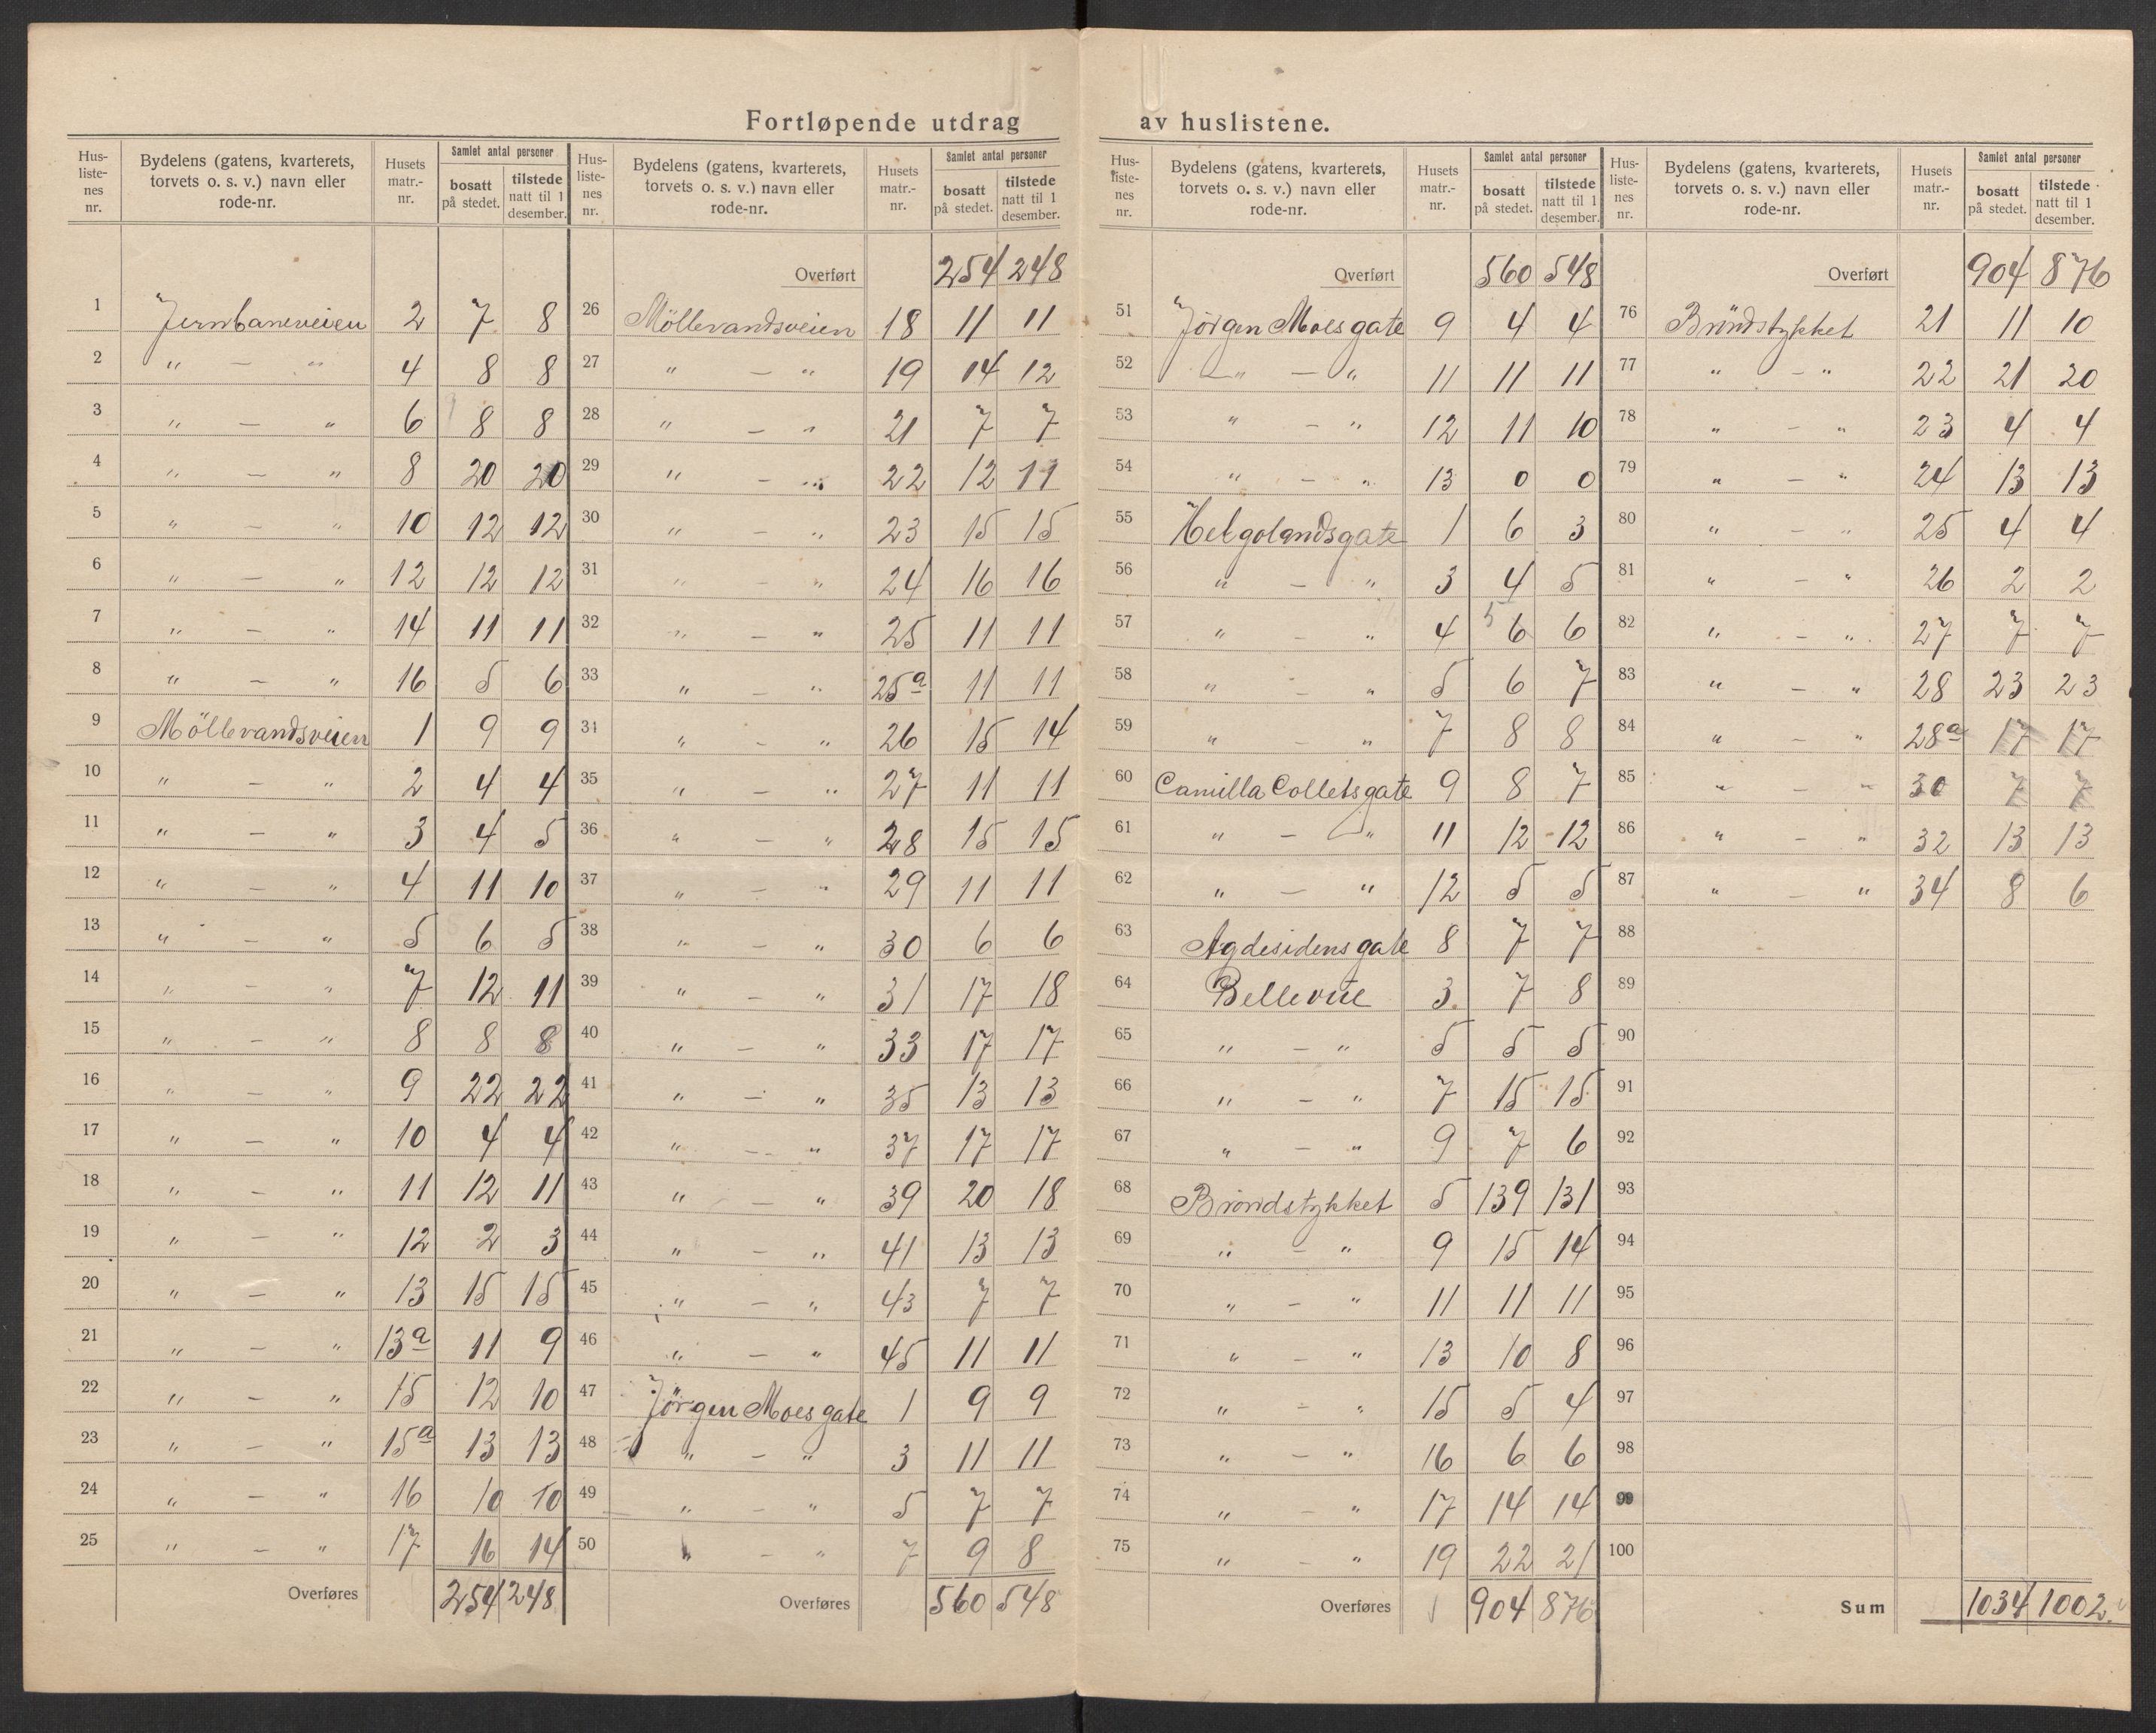 Fortløpende utdrag av huslistene.
Hus-listenes nr. | Bydelens (gatens, kvarterets, torvets o. s. v.) navn eller rode-nr. | Husets matr.-nr. | Samlet antal personer bosatt på stedet. | tilstede natt til 1 desember.
1 Jernbaneveien 2 7 8
2 " — " 4 8 8
3 " — " 6 8 8
4 " — " 8 20 20
5 " — " 10 12 12
6 " — " 12 12 12
7 " — " 14 11 11
8 " — " 16 5 6
9 Möllevandsveien 1 9 9
10 " — " 2 4 4
11 " — " 3 4 5
12 " — " 4 11 10
13 " — " 5 6 5
14 " — " 7 12 11
15 " — " 8 8 8
16 " — " 9 22 22
17 " — " 10 4 4
18 " — " 11 12 11
19 " — " 12 2 3
20 " — " 13 15 15
21 " — " 13a 11 9
22 " — " 15 12 10
23 " — " 15a 13 13
24 " — " 16 10 10
25 " — " 17 16 14
Overføres 254 248
Hus-listenes nr. | Bydelens (gatens, kvarterets, torvets o. s. v.) navn eller rode-nr. | Husets matr.-nr. | Samlet antal personer bosatt på stedet. | tilstede natt til 1 desember.
Overført 254 248
26 Möllevandsveien 18 11 11
27 " — " 19 14 12
28 " — " 21 7 7
29 " — " 22 12 11
30 " — " 23 15 15
31 " — " 24 16 16
32 " — " 25 11 11
33 " — " 25a 11 11
34 " — " 26 15 14
35 " — " 27 11 11
36 " — " 28 15 15
37 " — " 29 11 11
38 " — " 30 6 6
39 " — " 31 17 18
40 " — " 33 17 17
41 " — " 35 13 13
42 " — " 37 17 17
43 " — " 39 20 18
44 " — " 41 13 13
45 " — " 43 7 7
46 " — " 45 11 11
47 Jörgen Moes gate 1 9 9
48 " — " 3 11 11
49 " — " 5 7 7
50 " — " 7 9 8
Overføres 560 548
Hus-listenes nr. | Bydelens (gatens, kvarterets, torvets o. s. v.) navn eller rode-nr. | Husets matr.-nr. | Samlet antal personer bosatt på stedet. | tilstede natt til 1 desember.
Overført 560 548
51 Jörgen Moes gate 9 4 4
52 " — " 11 11 11
53 " — " 12 11 10
54 " — " 13 0 0
55 Helgolandsgate 1 6 3
56 " — " 3 4 5
57 " — " 4 5 6 6
58 " — " 5 6 7
59 " — " 7 8 8
60 Camilla Colletsgate 9 8 7
61 " — " 11 12 12
62 " — " 12 5 5
63 Agdesidens gate 8 7 7
64 Bellevue 3. 7 8
65 " — " 5 5 5
66 " — " 7 15 15
67 " — " 9 7 6
68 Bröndstykket 5 139 131
69 " — " 9 15 14
70 " — " 11 11 11
71 " — " 13 10 8
72 " — " 15 5 4
73 " — " 16 6 6
74 " — " 17 14 14
75 " — " 19 22 21
Overføres 904 876
Hus-listenes nr. | Bydelens (gatens, kvarterets, torvets o. s. v.) navn eller rode-nr. | Husets matr.-nr. | Samlet antal personer bosatt på stedet. | tilstede natt til 1 desember.
Overført 904 876
76 Bröndstykket 21 11 10
77 " — " 22 21 20
78 " — " 23 4 4
79 " — " 24 13 13
80 " — " 25 4 4
81 " — " 26 2 2
82 " — " 27 7 7
83 " — " 28 23 23
84 " — " 28a 17 17
85 " — " 30 7 7
86 " — " 32 13 13
87 " — " 34 8 6
88
89
90
91
92
93
94
95
96
97
98
99
100
Sum 1034 1002.